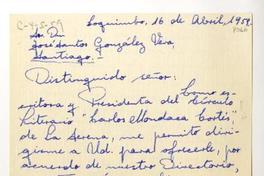 Coquimbo, 16 de Abril, 1959.
Sr. Dn.
José Santos González Vera,
Santiago.-
Distinguido señor:
Como es-
critora y Presidenta del Círculo
Literario "Carlos Mondaca Cortés"
de La Serena, me permito diri-
girme a Ud. para ofrecerle, por
acuerdo de nuestro Directorio,